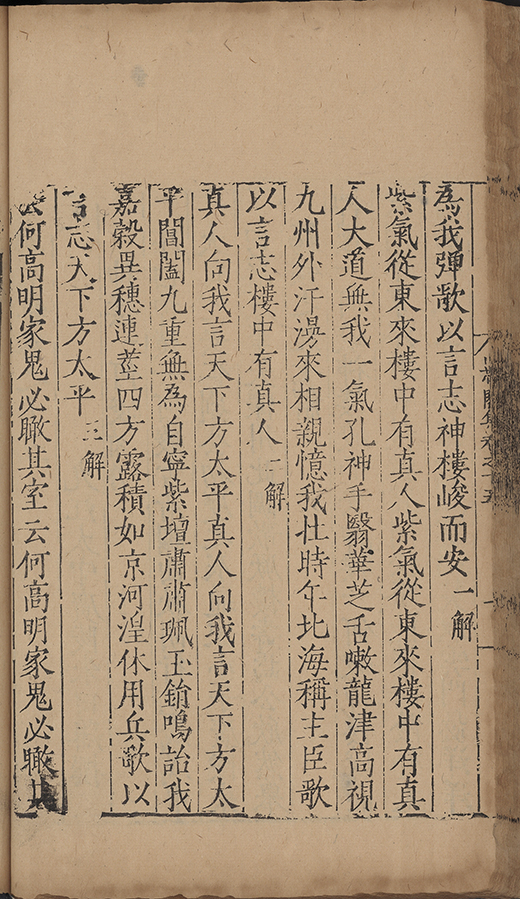 為我彈歌以言志神樓峻而安一解
紫氣從東來樓中有真人紫氣從東來樓中有真
人大道無我一氣孔神手翳華芝舌嗽龍津高視
九州外汗漫來相親憶我壯時年北海稱主臣歌
以言志樓中有真人二解
真人向我言天下方太平真人向我言天下方太
平閶闔九重無為自寧紫壇肅肅珮玉鏘鳴詒我
嘉穀異穗連莖四方露積如京河湟休用兵歌以
言志天下方太平三解
云何高明家鬼必瞰其室云何高明家鬼必瞰其